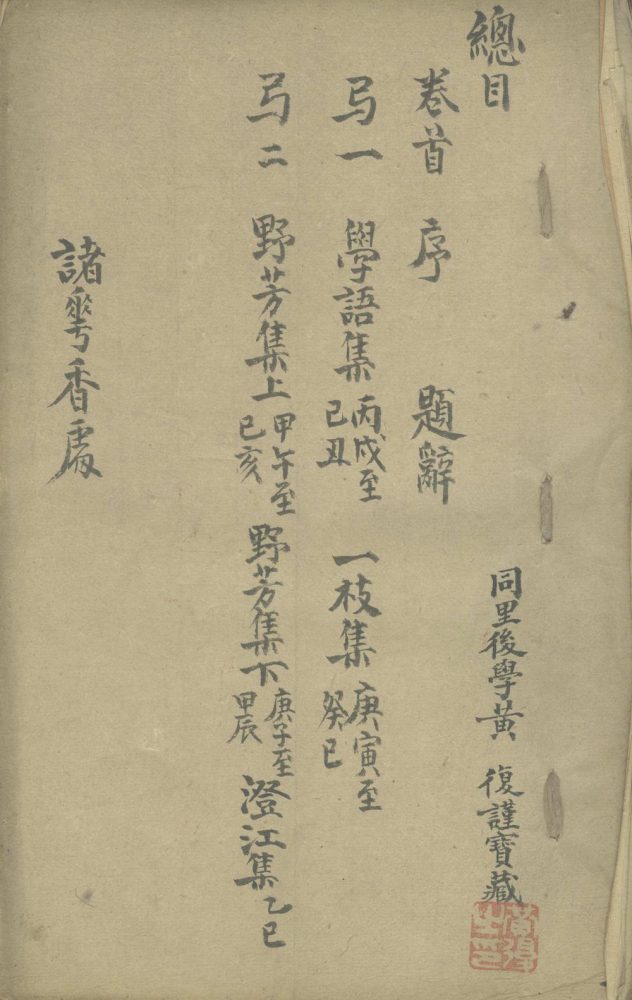 總目
同里後學黃 復謹寶藏
黃復之印
卷首 序 題辭
弓一 學語集 丙戌至己丑 一枝集 庚寅至癸巳
弓二 野芳集上 甲午至己亥 野芳集下 庚子至甲辰 澄江集 乙巳
諸㝵香處